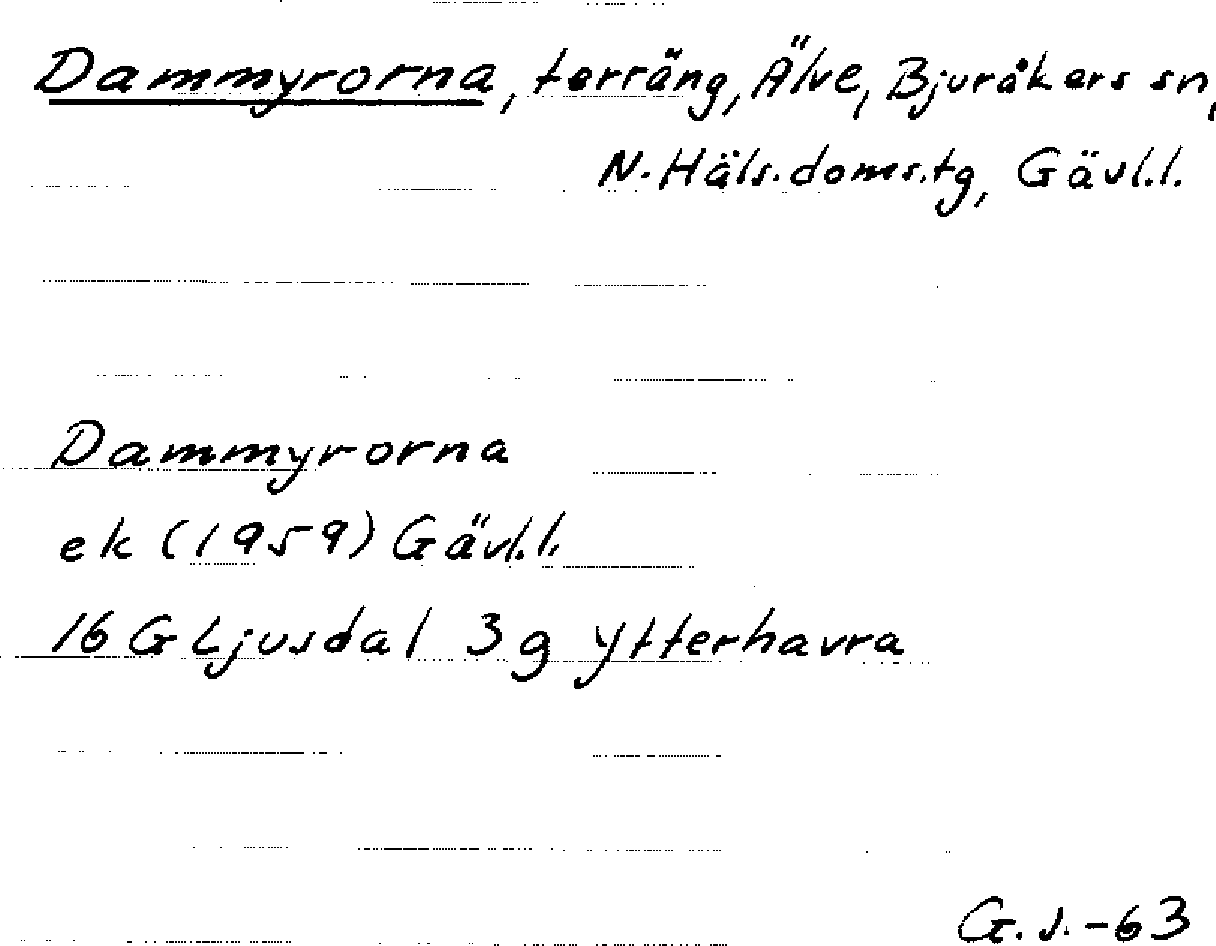 Dammyrorna, terräng, Älve, Bjuråkers sn,
N. Häls. doms.tg, Gävl.l.
Dammyrorna
ek (1959) Gävl.l.
16 G Ljusdal 3 g Ytterhavra
G.J.-63